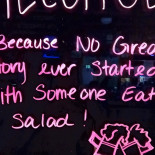 Because No Grea
tory ever Started
ith Someone Eat
Salad!